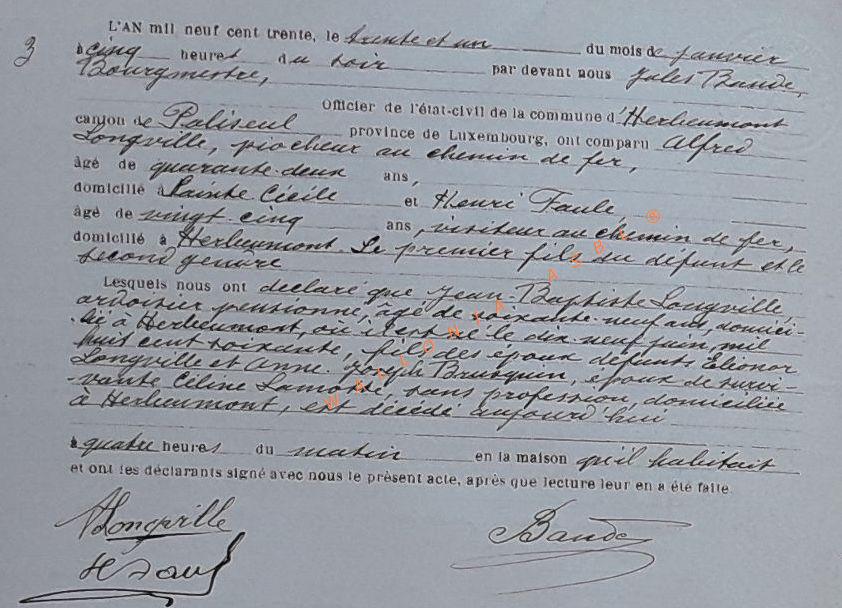 3
L'AN mil neuf cent trente, le trente et un du mois de janvier
à cinq heures du soir par devant nous Jules Baude,
Bourgmestre,
Officier de l'état-civil de la commune d'Herbeumont
canton de Paliseul province de Luxembourg, ont comparu Alfred
Longville, piocheur au chemin de fer,
âgé de quarante-deux ans,
domicilié à Sainte Cécile et Henri Faule,
âgé de vingt-cinq ans, visiteur au chemin de fer,
domicilié à Herbeumont. Le premier fils du défunt et le
second gendre
Lesquels nous ont declaré que Jean-Baptiste Longville,
ardoisier pensionné, âgé de soixante-neuf ans, domici-
lié à Herbeumont, où il est né le dix-neuf juin, mil
huit cent soixante, fils des époux défunts Eléonor
Longville et Anne-Joseph Brusquin, époux de survi-
-vante Céline Lamotte, sans profession, domiciliée
à Herbeumont, est décédé aujourd'hui
à quatre heures du matin en la maison qu'il habitait
et ont les déclarants signé avec nous le présent acte, après que lecture leur en a été faite.
ALongville Baude
WALLONIA ASBL ©